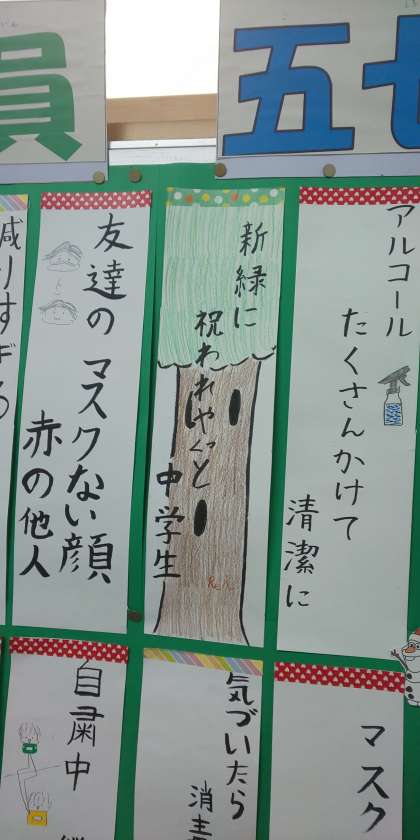 員
五七
アルコール
たくさんかけて
清潔に
新緑に
祝われやっと
中学生
友達の
マスクない顔
赤の他人
減りすぎる
マスク
気づいたら
消毒
自粛中